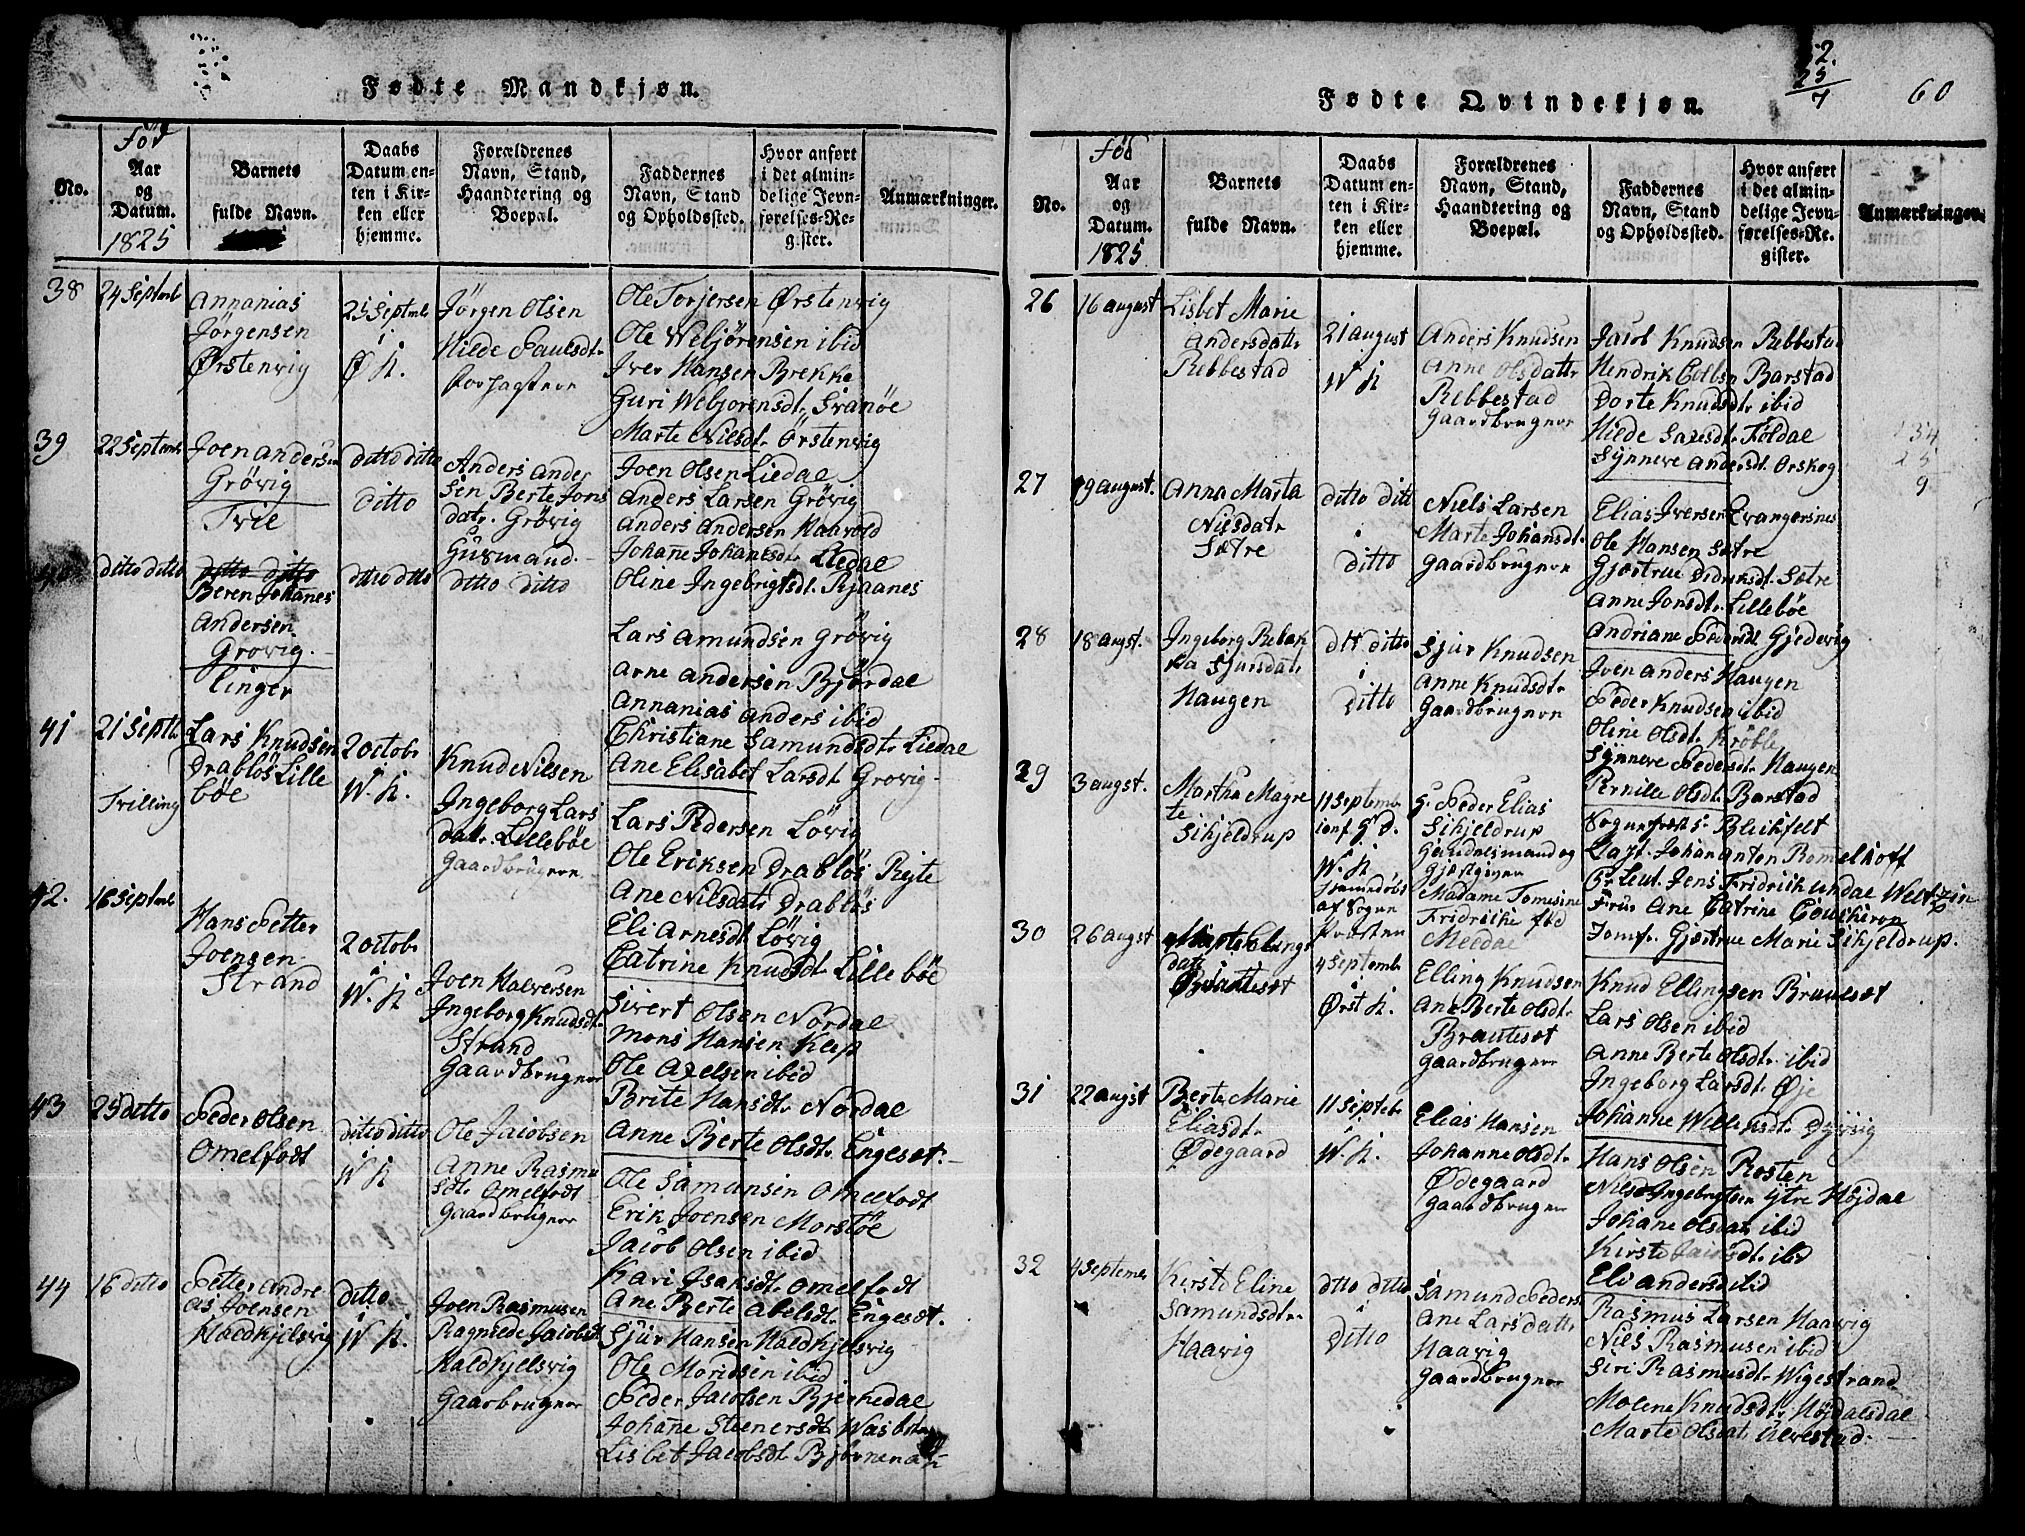 Fødte Mandkjøn.
No.
Fød
Aar
og
Datum.
1825
Barnets
fulde Navn.
Daabs
Datum en-
ten i Kir-
ken eller
hjemme.
Forældrenes
Navn, Stand,
Haandtering og
Boepæl.
Faddernes
Navn, Stand
og Opholdssted.
Hvor anført
i det almin-
delige Jevn-
førelses-Re-
gister.
Anmærkninger.
38
24 Septemb
Annanias
Jörgensen
Ørstenvig
25 Septmb
i
Ø K.
Jörgen Olsen
Hilde Paulsdt.
Ole Torjersen Ørstenvig
Ole Webjørensen ibid
Iver Hansen Brekke
Guri Webjorensdt. Svanøe
Marte Nilsdt. Örstenvig
39
22 Septemb
Joen Andersen
Grövig
ditto ditto
ditto
Anders Ander
sen Berte Jons
datr. Grövig
Huusmand.
Joen Olsen Liedal
Anders Larsen Grövig
Anders Andersen Haavold
Johane Johansdt. Liedal
Oline Ingebrigtsdt. Rjaanes
40
ditto ditto
ditto ditto
Beren Johanes
Andersen
Grovig.
linger
ditto ditto
ditto ditto
Lars Amundsen Grövig
Arne Andersen Björdal
Annanias Anders ibid
Christiane Samundsdt. Liedal
Ane Elisabet Larsdt. Grovig
41
21 Septb.
Trilling
Lars Knudsen
Drabløs Lille
böe
2 octobr
W. K.
Knud Nilsen
Ingeborg Lars
datr. Lillebøe
Gaardbrugere
Lars Pedersen Lövig
Ole Eriksen Drabløs Rejte
Ane Nilsdatr Drabløs
Eli Arnesdt Lövig
Catrine Knudsdt. Lillebøe
42.
18 Septmb
Hans Petter
Joensen
Strand
2 octobr
i
W. K
Joen Halvorsen
Ingeborg Knudsdt.
Strand
Gaardbruger
Sivert Olsen Nordal
Mons Hansen Klep
Ole Axelsen ibid
Brite Hansdt. Nordal
Anne Berte Olsdt. Engeset.
43
25 ditto
Peder Olsen
Omelfodt
ditto ditto
i
W K
Ole Jacobsen
Anne Rasmu
sdt. Omelfodt
Gaardbruger
Ole Samunsen Omelfodt
Erik Joensen Morstöe
Jacob Olsen ibid
Kari Isaksdt. Omelfodt
Ane Berte Abelsdt. Engesdt.
44
16 ditto
Petter Andre
as Joensen
Haldkjelsvig
ditto
i
W K.
Joen Rasmusen
Ragnilde Jacobsdt
Haldkjelsvig
Gaarbruger
Sjur Hansen Haldkjelsvig
Ole Moridsen ibid
Peder Jacobsen Bjerkedal
Johane Steenersdt.
Lisbet Jacobsdt.
Fødte Qvindekjøn.
52.
25
7
60
No.
Fød
Aar
og
Datum.
1825
Barnets
fulde Navn.
Daabs
Datum en-
ten i Kir-
ken eller
hjemme.
Forældrenes
Navn, Stand,
Haandtering og
Boepæl.
Faddernes
Navn, Stand
og Opholdssted.
Hvor anført
i det almin-
delige Jevn-
førelses-Re-
gister.
Anmærkninger.
26
16 august
Lisbet Marie
Andersdatr
Rebbestad
21 august
i
W K
Anders Knudsen
Anne Olsdattr
Rebbestad
Gaardbruger
Jacob Knudsen Rebbestad
Hendrik Colbn Barstad
Dorte Knudsdt. ibid
Hilde Saxesdt. Foldal
Synneve Andersdt. Orskog
34
25
9
27
19 august.
Anna Marta
Nilsdatr
Sætre
ditto ditt
i
ditto
Niels Larsen
Marte Johansdt.
Gaardbruger
Elias Iversen
Ole Hansen Sætre
Gjertrue Didriksdt. Sætre
Anne Jonsdt. Lillebøe
Andriane Pedersdt Gjedsvig
28
18 augst.
Ingeborg Rebek
ka Sjursdatr
Haugen
ditt ditto
i
ditto
Sjur Knudsen
Anne Knudsdt.
Gaardbruger
Joen Anders Haugen
Peder Knudsen ibid
Oline Olsdt. Krøble
Synneve Pedersdt Haugen
Pernille Olsdt. Barstad
29
3 augst.
Martha Magre
te
Sihjeldrup
11 Septemb
W. K
hjemmedøbt
af Sogne
Præsten
S. Peder Elias
Sihjeldrup
Handelsmand og
Gjæstgiver
Madame Tomesine
Fridrike fød
Meldal
Sogneprest S. Bleikfelt
Capt. Johan Anton Bomelhoff
Pr Leut. Jens Fridrich Undal
Frue Ane Catrine
Jomfr. Gjertrue Marie Sihjeldrup.
30
26 augst
4 Septemb
i
Ørst K.
Elling Knudsen
Ane Berte Olsdt.
Brautesæt
Gaardbruger
Knud Ellingsen Brautesæt
Lars Olsen ibid
Anne Berte Olsdt. ibid
Ingeborg Larsdt. Øje
Johanne Willumsdt. Dyrvig
31
22 augst
Berte Marie
Eliasdt.
Ødegaard
11 Septeb.
i
W. K.
Elias Hansen
Johanne Olsdt.
Ødegaard
Gaardbruger
Hans Olsen Rosten
Nilsd Ingebrigtsen ytre Højdal
Johane Olsdatr ibid
Kirste Jacobsdt. ibd
Eli Andersd ibid
32
4 Septembr
Kirste Eline
Samundsdt.
Haavig
ditto ditto
i
ditto
Samund Peders.
Ane Larsdattr
Haavig
Gaardbruger
Rasmus Larsen Haavig
Nils Rasmusen ibid
Siri Rasmusdt. Wigestrand
Molene Knudsdt. Højdalsdal
Marte Olsdat. Ulvestad.